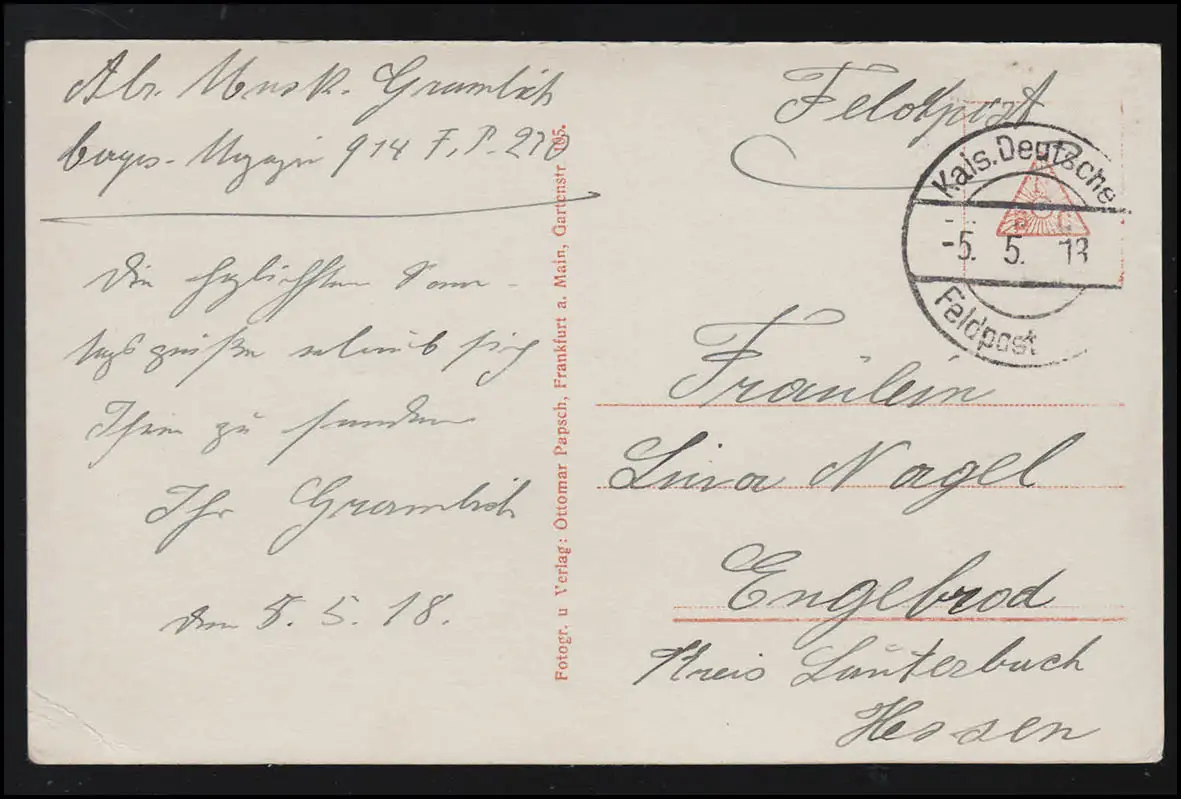 Abs. Musk. Gramlich
Etappen-Magazin 914 F. P. 270
Die herzlichsten Sonn-
tagsgrüße erlaub sich
Ihnen zu senden
Ihr Gramlich
den 5. 5. 18.
Fotogr. u Verlag: Ottomar Papsch, Frankfurt a. Main, Gartenstr 105.
Feldpost
Kais. Deutsche
-5. 5. 18
Feldpost
Fräulein
Lina Nagel
Engelrod
Kreis Lauterbach
Hessen